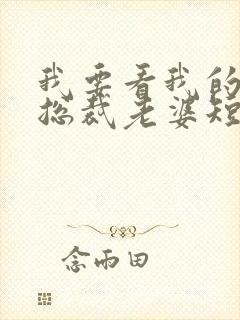 我要看我的
总裁老婆短
念雨田